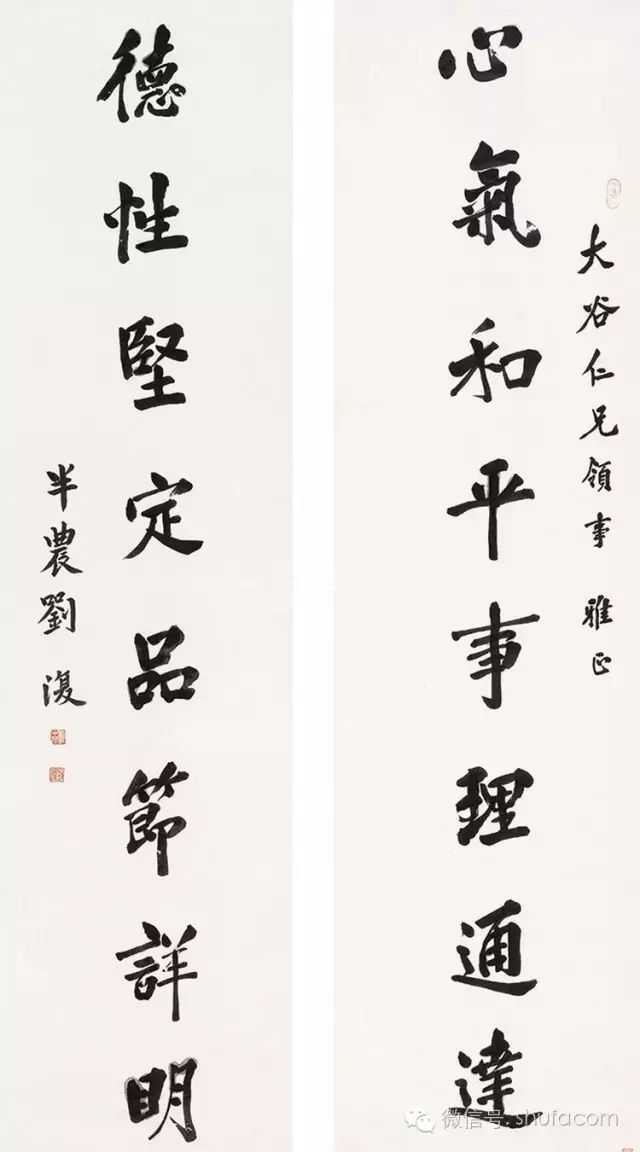 大谷仁兄領事 雅正
心氣和平事理通達
德性堅定品節詳明
半農劉復
微信号: shufacom